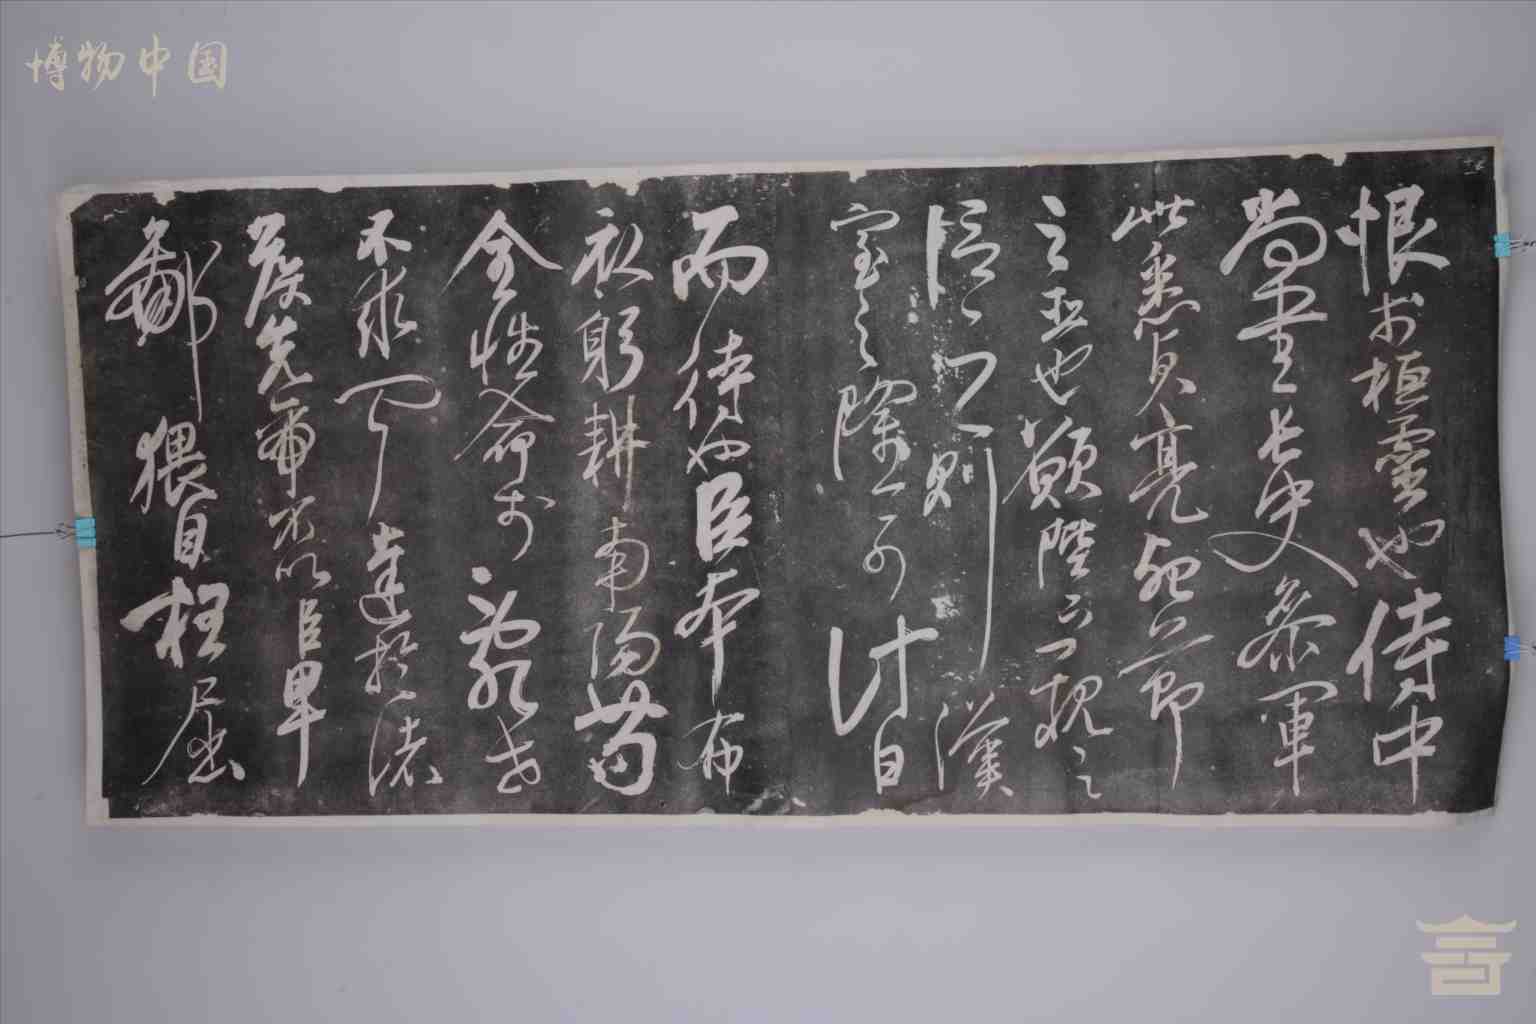 博物中国
恨於桓靈也侍中
尚書長史參軍
此悉貞亮死節
之臣也願陛下親之
信之則漢
室之隆可計日
而待也臣本布
衣躬耕南陽苟
全性命於亂世
不求聞達於諸
侯先帝不以臣卑
鄙猥自枉屈